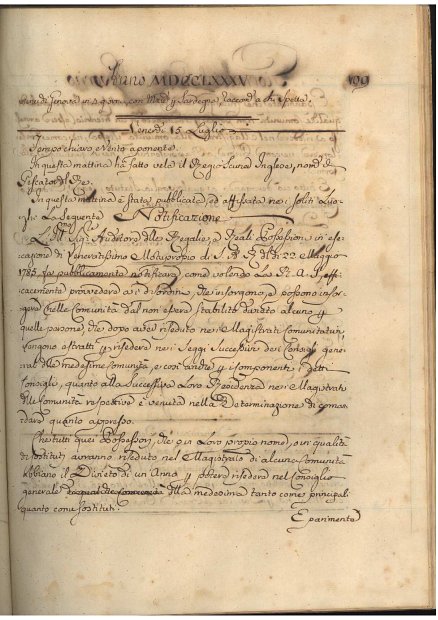 Anno MDCCLXXXV 109
Venerdi 15 Luglio
Tempo chiaro, e Vento a ponente.
In questa mattina ha fatto vela il Regio Inglese, nom.
In questa mattina è stata pubblicata, ed affissata nei soliti Luo
ghi La Seguente Notificazione
L'Ill.mo Sig. Auditore delle Regalie, e Reali Possessioni in ese
cuzione di Veneratissimo Motuproprio di S. A. R. de' 22 Maggio
1785 fa pubblicamente notificare, come volendo La R. A. S. effi
cacemente provvedere ai disordini, che insorgono, e possono insor
gere nelle Comunità dal non esservi stabilito divieto alcuno p
quelle persone, che dopo aver riseduto nei Magistrati Comunitativi,
vengono estratti p risedere nei Seggi Successivi dei Consigli gene
rali delle medesime Comunità, e così anche p i Componenti detti
Consigli, quanto alla Successiva Loro Residenza nei Magistrati
delle Comunità respettive è venuta nella Determinazione di coman
dare quanto appresso.
Che tutti quei Possessori, che o in Loro proprio nome, o in qualità
di sostituti avranno riseduto nel Magistrato di alcuna Comunità
abbiano il Divieto di un Anno p potere risedere nel Consiglio
generale della medesima tanto come principali
quanto come sostituti.
E parimente